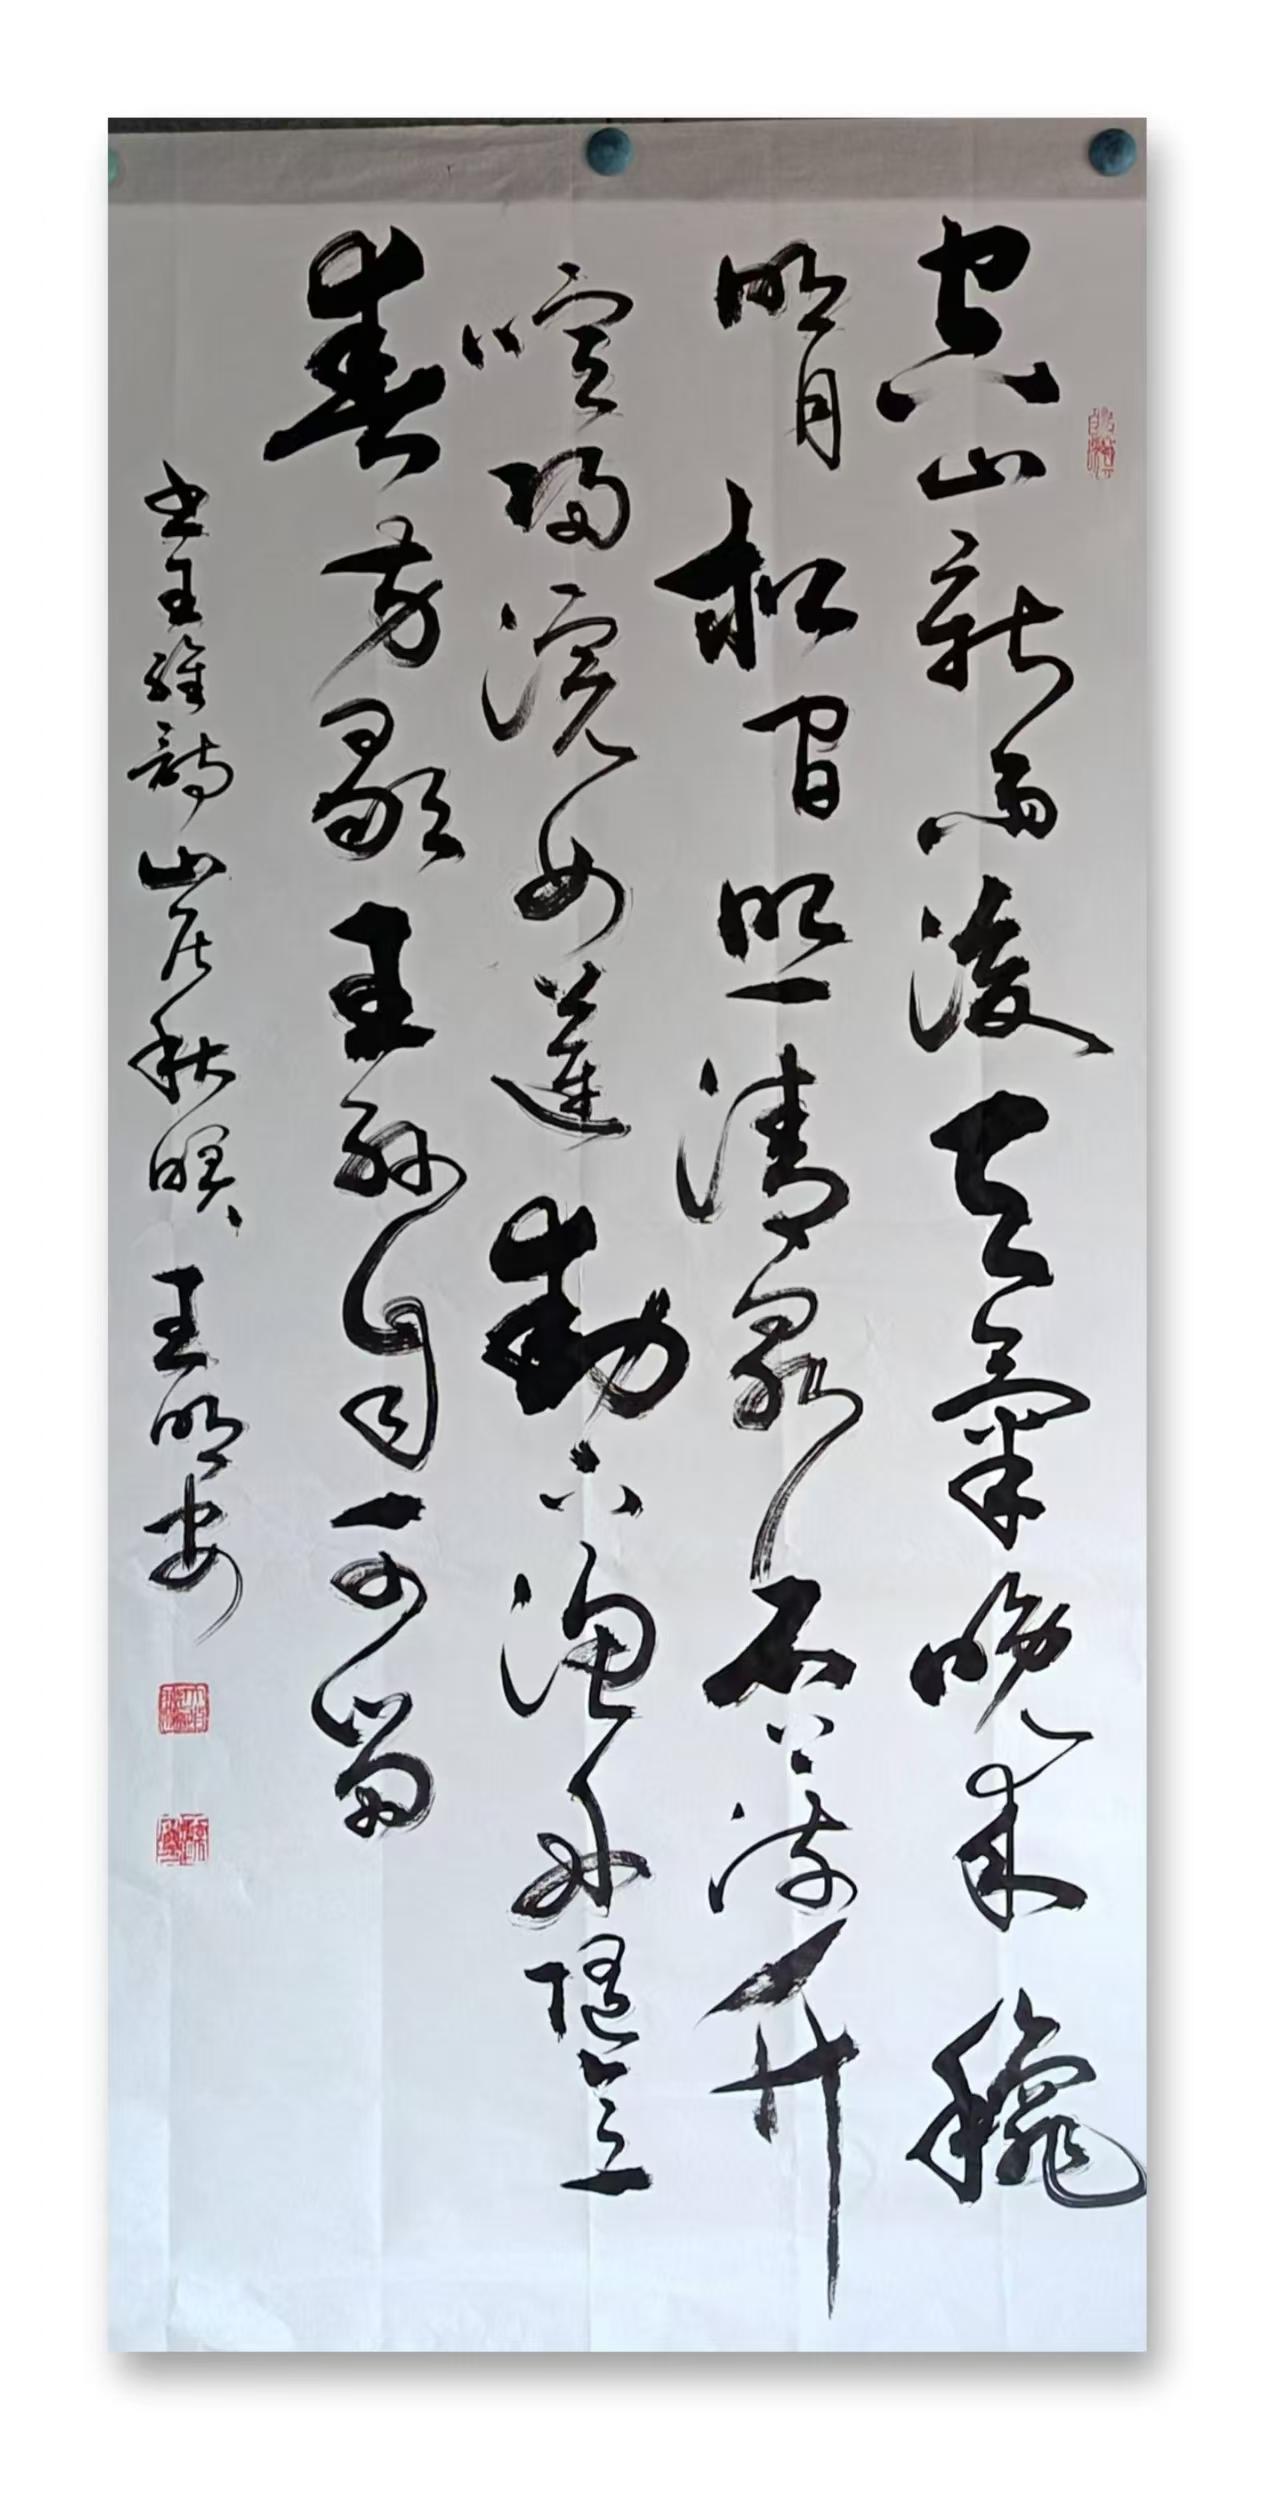 空山新雨後天氣晚來龝
明月松間照清泉石上流竹
喧歸浣女蓮動下漁舟隨意
春芳歇王孫自可留
書王維詩山居秋暝 王明安